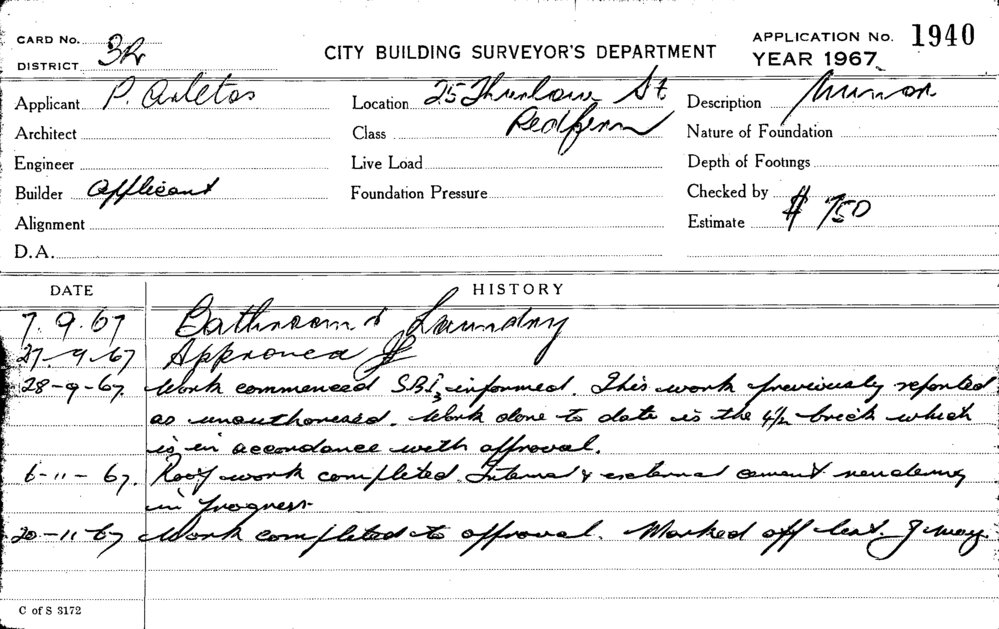 CARD No. 3R
DISTRICT
CITY BUILDING SURVEYOR'S DEPARTMENT
APPLICATION No. 1940
YEAR 1967
Applicant P. Arletos
Location 25 Thurlow St
Redfern
Description Minor
Architect
Class
Nature of Foundation
Engineer
Live Load
Depth of Footings
Builder Applicant
Foundation Pressure
Checked by
Alignment
Estimate $ 750
D.A.
DATE HISTORY
7.9.67 Bathroom & Laundry
27-9-67 Approved
28-9-67. Work commenced S.B.I. informed. This work previously reported
as unauthorised. Work done to date is the 4½ brick which
is in accordance with approval.
6-11-67. Roof work completed. Internal & external cement rendering
in progress
20-11-67 Work completed to approval. Marked off list.
C of S 3172